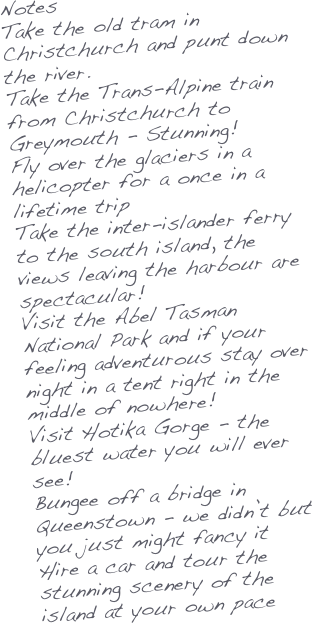 Notes
Take the old tram in
Christchurch and punt down
the river.
Take the Trans-Alpine train
from Christchurch to
Greymouth - Stunning!
Fly over the glaciers in a
helicopter for a once in a
lifetime trip
Take the inter-islander ferry
to the south island, the
views leaving the harbour are
spectacular!
Visit the Abel Tasman
National Park and if your
feeling adventurous stay over
night in a tent right in the
middle of nowhere!
Visit Hotika Gorge - the
bluest water you will ever
see!
Bungee off a bridge in
Queenstown - we didn't but
you just might fancy it
Hire a car and tour the
stunning scenery of the
island at your own pace